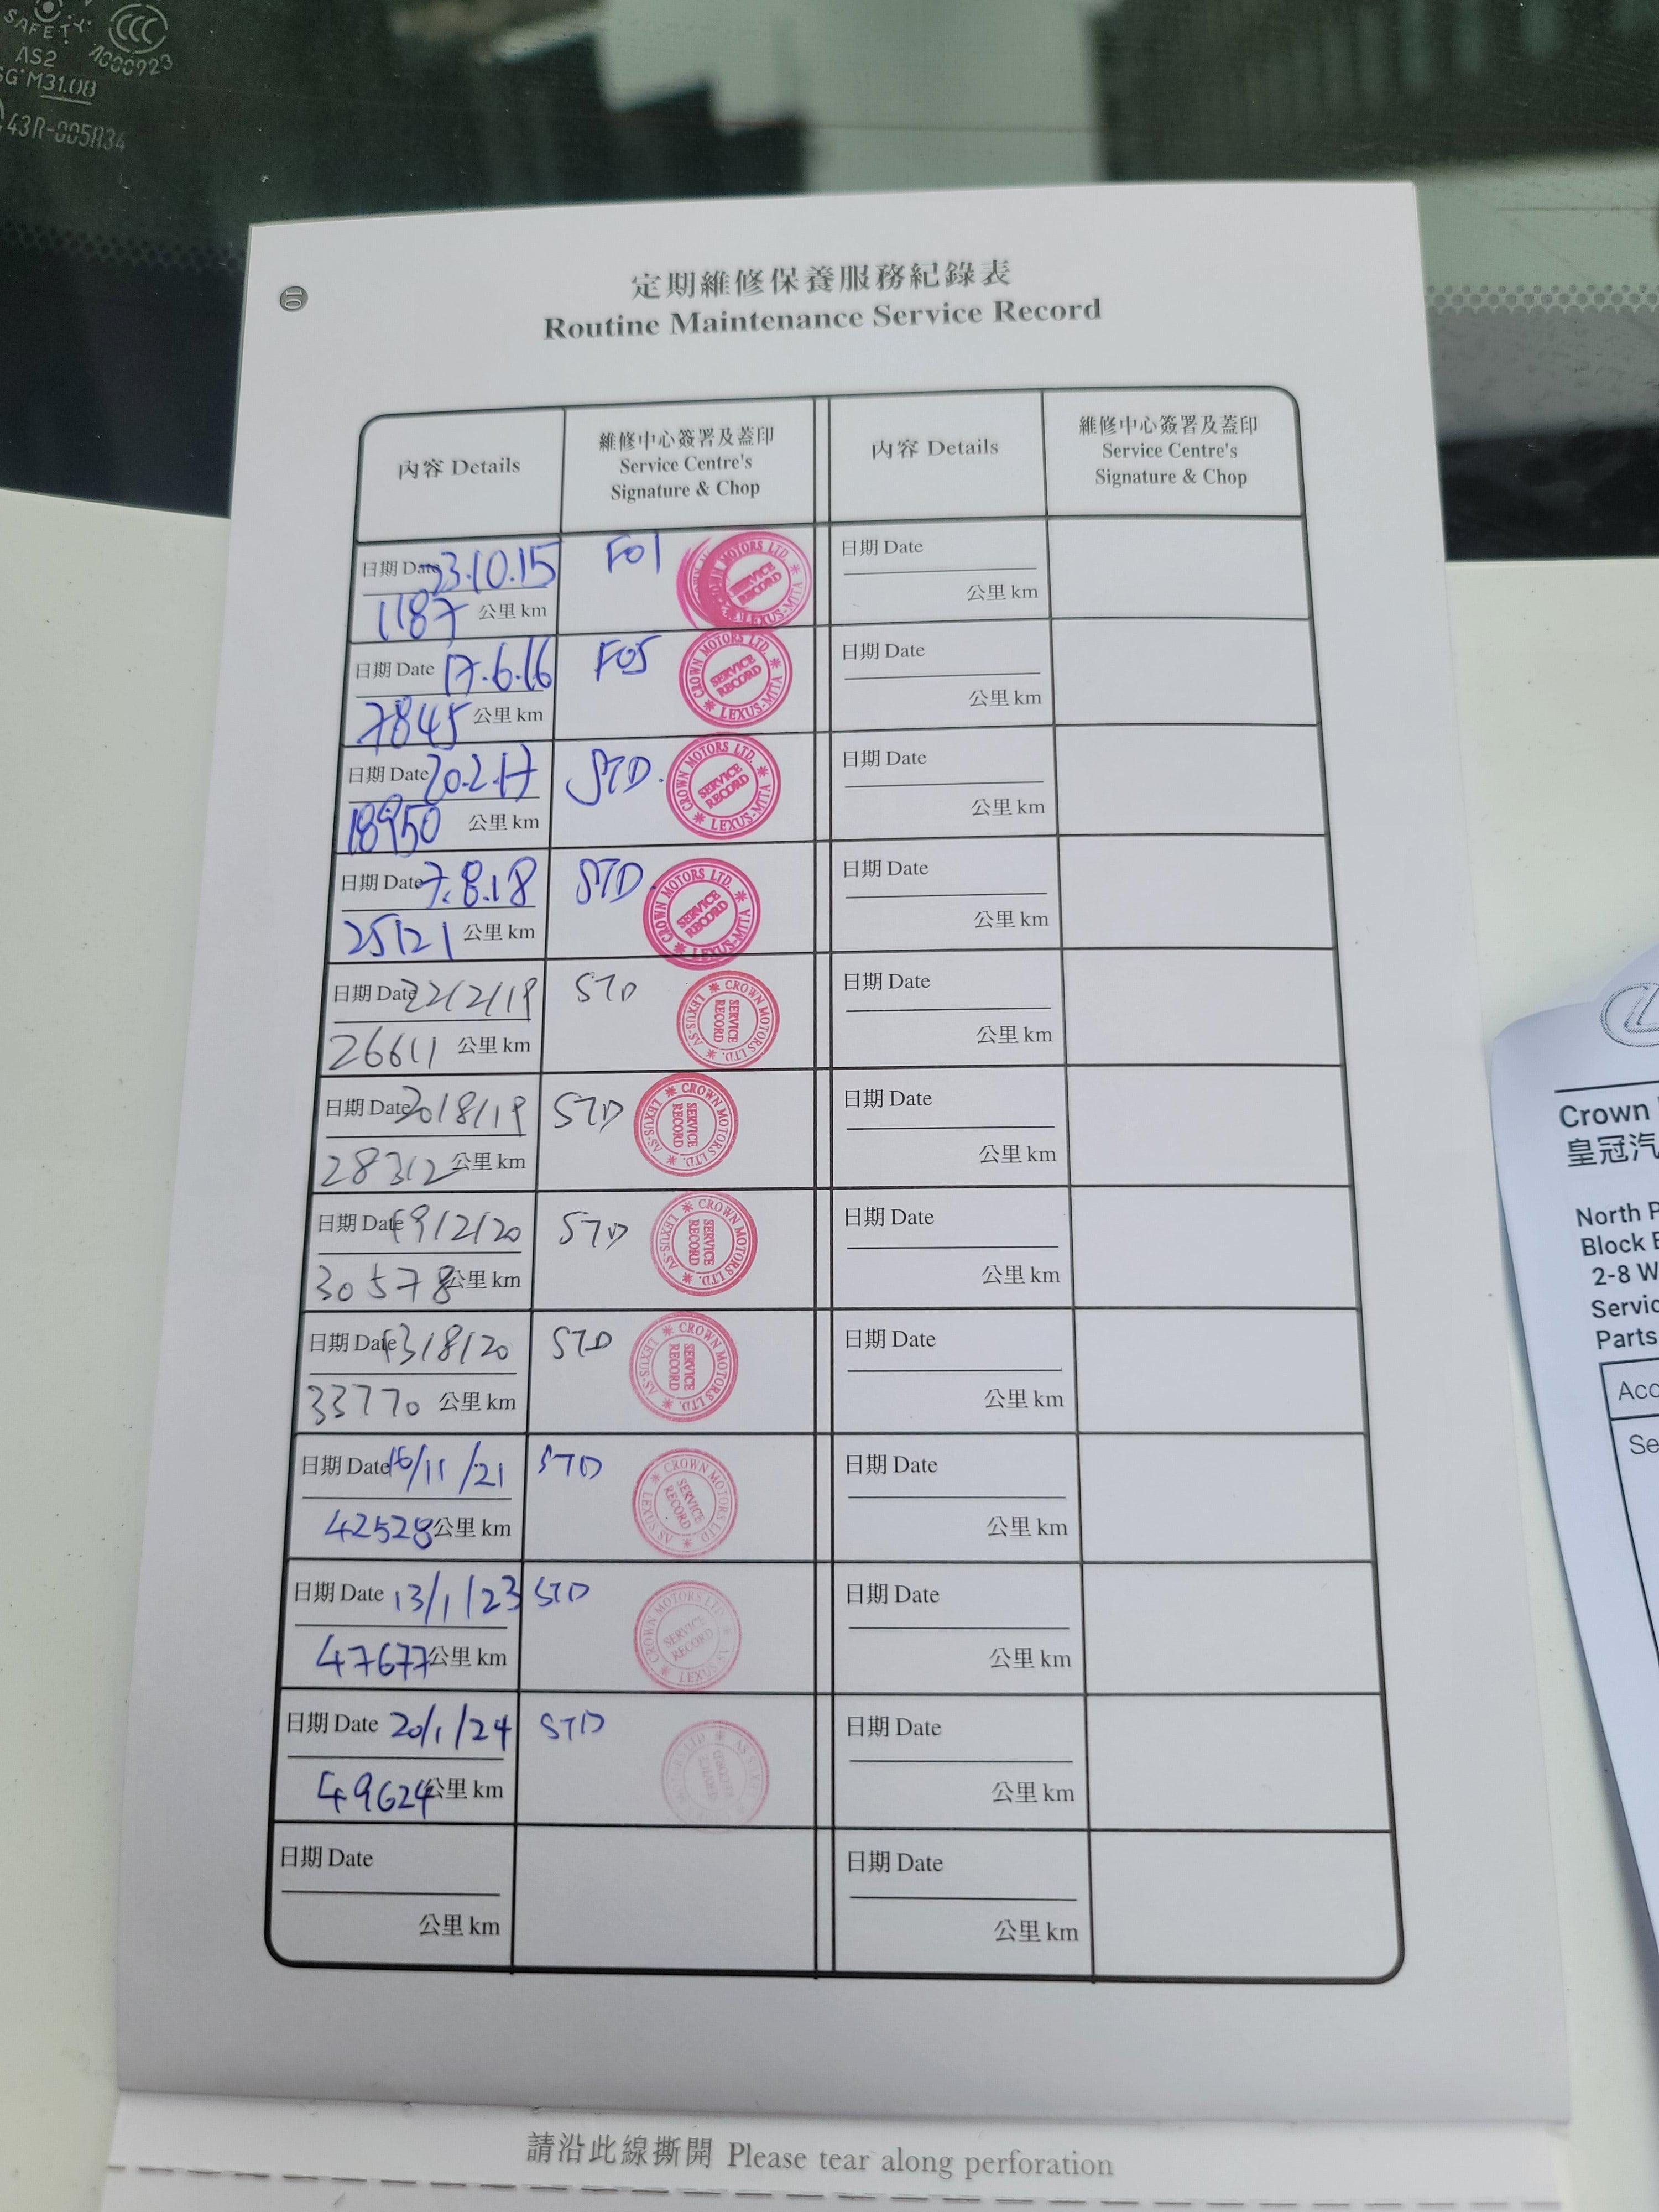 SAFETY
CCC
AS2
A000923
M31.08
43R-005834
10
定期維修保養服務紀錄表
Routine Maintenance Service Record
內容 Details
維修中心簽署及蓋印
Service Centre's
Signature & Chop
內容 Details
維修中心簽署及蓋印
Service Centre's
Signature & Chop
日期 Date 23.10.15
1187 公里 km
F01
CROWN MOTORS LTD. LEXUS-MITA
SERVICE RECORD
日期 Date
公里 km
日期 Date 17.6.16
7845 公里 km
F05
CROWN MOTORS LTD. LEXUS-MITA
SERVICE RECORD
日期 Date
公里 km
日期 Date 20.2.17
18950 公里 km
STD.
CROWN MOTORS LTD. LEXUS-MITA
SERVICE RECORD
日期 Date
公里 km
日期 Date 7.8.18
25121 公里 km
STD.
CROWN MOTORS LTD. LEXUS-MITA
SERVICE RECORD
日期 Date
公里 km
日期 Date 22/2/19
26611 公里 km
STD
CROWN MOTORS LTD. LEXUS-AS
SERVICE RECORD
日期 Date
公里 km
日期 Date 20/8/19
28312 公里 km
STD
CROWN MOTORS LTD. LEXUS-AS
SERVICE RECORD
日期 Date
公里 km
日期 Date 19/2/20
30578 公里 km
STD
CROWN MOTORS LTD. LEXUS-AS
SERVICE RECORD
日期 Date
公里 km
日期 Date 13/8/20
33770 公里 km
STD
CROWN MOTORS LTD. LEXUS-AS
SERVICE RECORD
日期 Date
公里 km
日期 Date 16/11/21
42528 公里 km
STD
CROWN MOTORS LTD. LEXUS AS
SERVICE RECORD
日期 Date
公里 km
日期 Date 13/1/23
47677 公里 km
STD
CROWN MOTORS LTD LEXUS AS
SERVICE RECORD
日期 Date
公里 km
日期 Date 20/1/24
49624 公里 km
STD
日期 Date
公里 km
日期 Date
公里 km
日期 Date
公里 km
請沿此線撕開 Please tear along perforation
Crown
皇冠汽
North P
Block
2-8 W
Servic
Parts
Acc
Se